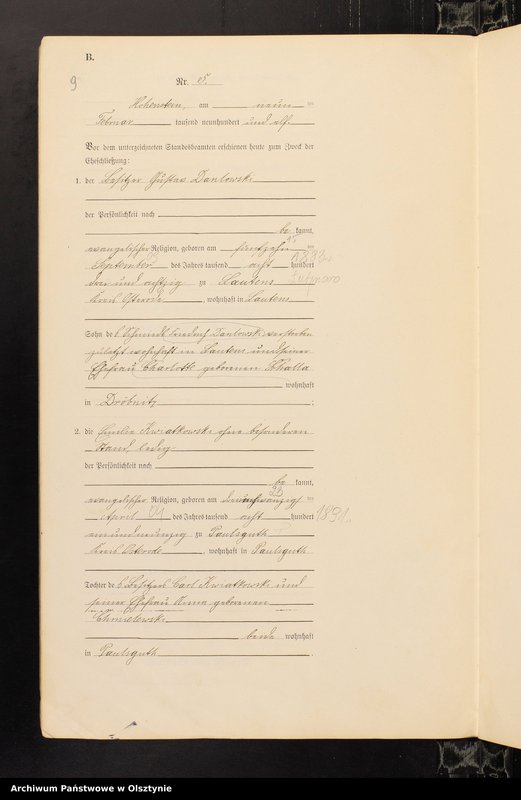 B.
9
Nr. 5.
Hohenstein, am neun ten
Februar tausend neunhundert und elf.
Vor dem unterzeichneten Standesbeamten erschienen heute zum Zweck der
Eheschließung:
1. der Besitzer Gustav Danlowski
der Persönlichkeit nach
be kannt,
evangelischer Religion, geboren am fünfzehn ten
15
September des Jahres tausend acht hundert
1883
drei und achtzig zu Lautens
Kreis Osterode, wohnhaft in Lautens
Sohn des Friedrich Danlowski verstorben
zuletzt wohnhaft in Lautens und seiner
Ehefrau Charlotte geborenen
wohnhaft
in Dröbnitz;
2. die Emilie Kwiatkowski ohne besonderen
Stand, ledig
der Persönlichkeit nach
be kannt,
23
evangelischer Religion, geboren am dreiundzwanzig ten
April 04 des Jahres tausend acht hundert 1891
einundneunzig zu Paulsguth
Kreis Osterode, wohnhaft in Paulsguth
Tochter des Besitzers Carl Kwiatkowski und
seiner Ehefrau Anna geborenen
Chmielewski
beide wohnhaft
in Paulsguth.
Archiwum Państwowe w Olsztynie